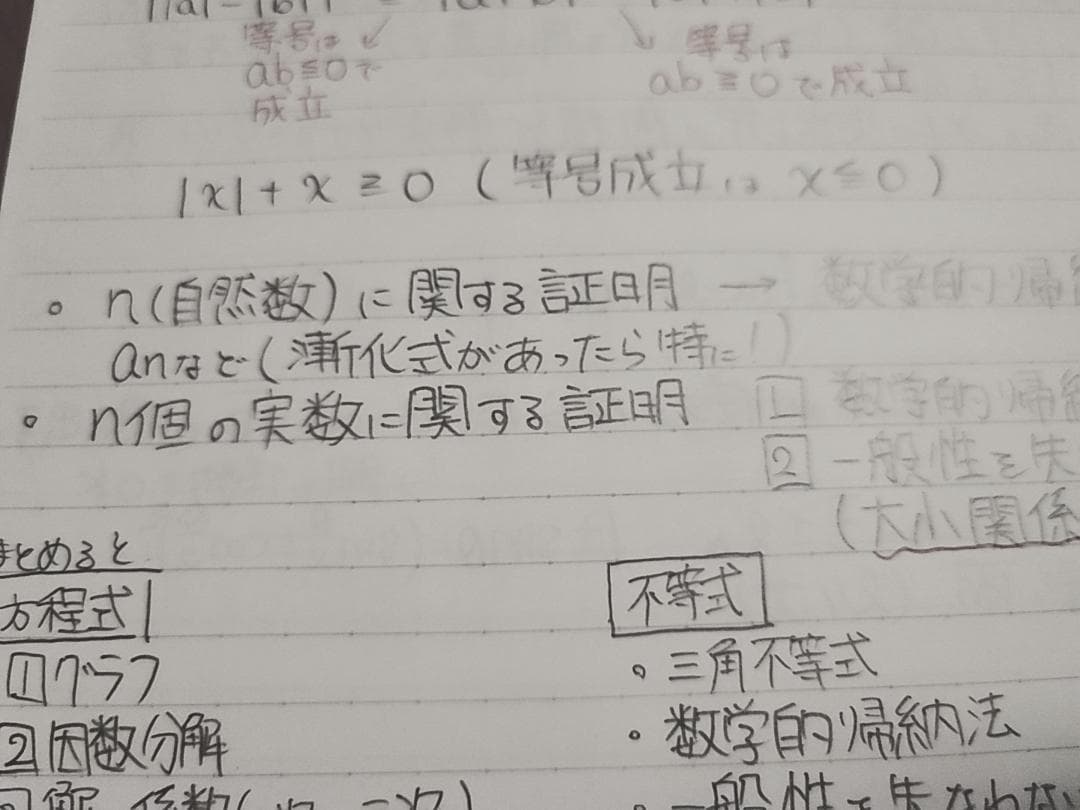 ||a|-|b||
等号は
ab≦0で
成立
等号は
ab≧0で成立
|x|+x≧0(等号成立は x≦0)
。n(自然数)に関する証明 → 数学的帰納
anなど(漸化式があったら特に!)
。n個の実数に関する証明 1 数学的帰納
2 一般性を失
(大小関係
まとめると
方程式
1 グラフ
2 因数分解
解 係数(
不等式
。三角不等式
。数学的帰納法
。一般性を失なわない